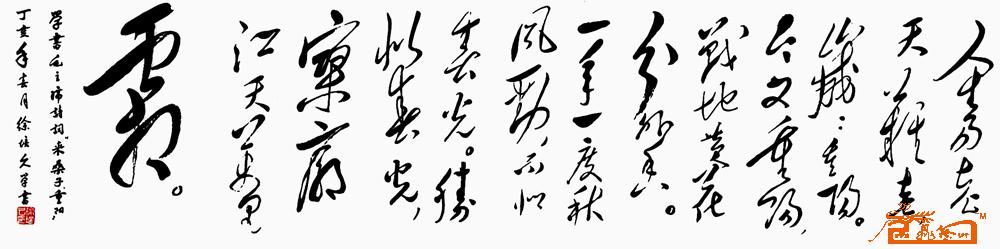 人生易老
天难老
岁岁重阳。
今又重阳
战地黄花
分外香。
一年一度秋
风劲，不似
春光。胜
似春光，
寥廓
江天万里
霜。
学书毛主席诗词“采桑子重阳”
丁亥年春月徐佳久草书